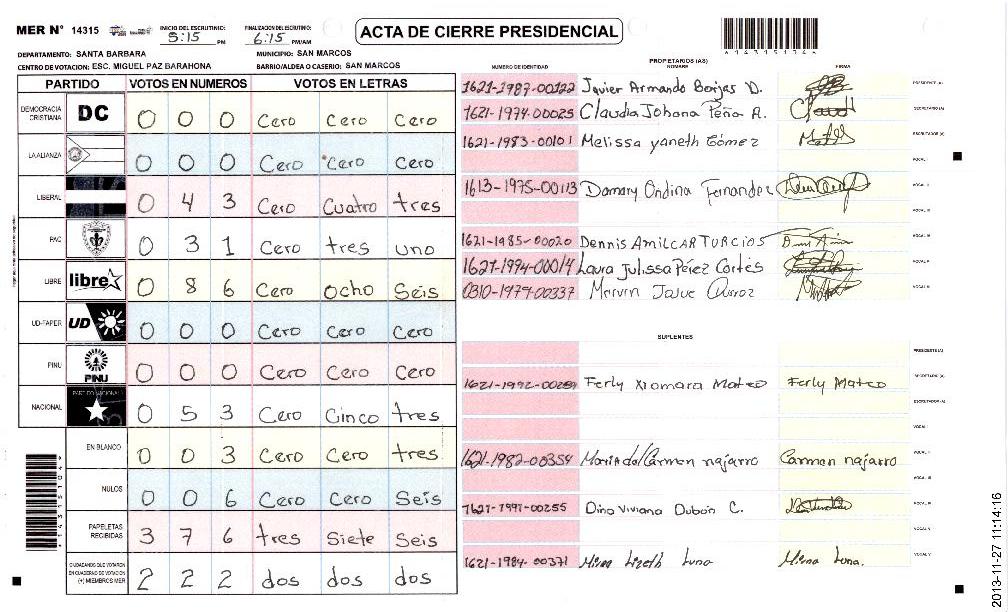 MER N° 14315 INICIO DEL ESCRUTINIO: 5:15 PM FINALIZACION DEL ESCRUTINIO: 6:15 PM/AM
ACTA DE CIERRE PRESIDENCIAL
DEPARTAMENTO: SANTA BARBARA MUNICIPIO: SAN MARCOS
CENTRO DE VOTACION: ESC. MIGUEL PAZ BARAHONA BARRIO/ALDEA O CASERIO: SAN MARCOS
PARTIDO VOTOS EN NUMEROS VOTOS EN LETRAS
DEMOCRACIA CRISTIANA DC 0 0 0 Cero Cero Cero
LA ALIANZA 0 0 0 Cero Cero Cero
LIBERAL 0 4 3 Cero Cuatro tres
PAC 0 3 1 Cero tres uno
LIBRE libre 0 8 6 Cero Ocho Seis
UD-FAPER UD 0 0 0 Cero Cero Cero
PINU PINU 0 0 0 Cero Cero Cero
NACIONAL PARTIDO NACIONAL 0 5 3 Cero Cinco tres
EN BLANCO 0 0 3 Cero Cero tres
NULOS 0 0 6 Cero Cero Seis
PAPELETAS RECIBIDAS 3 7 6 tres Siete Seis
CIUDADANOS QUE VOTARON EN CUADERNO DE VOTACION (+) MIEMBROS MER 2 2 2 dos dos dos
PROPIETARIOS (AS)
NUMERO DE IDENTIDAD NOMBRE FIRMA
1621-1987-00122 Javier Armando Borjas D. PRESIDENTE (A)
1621-1974-00025 Claudia Johana Peña A. SECRETARIO (A)
1621-1983-00101 Melissa yaneth Gómez ESCRUTADOR (A)
VOCAL I
1613-1975-00113 Damary Ondina Fernandez VOCAL II
VOCAL III
1621-1985-00020 Dennis AMILCAR TURCIOS VOCAL IV
1627-1994-00014 Laura Julissa Pérez Cortés VOCAL V
0310-1979-00337 Marvin Josue VOCAL VI
SUPLENTES
PRESIDENTE (A)
1621-1992-00259 Ferly Xiomara Mateo Ferly Mateo SECRETARIO (A)
ESCRUTADOR (A)
VOCAL I
1621-1982-00354 Maria del Carmen najarro Carmen najarro
VOCAL III
1621-1997-00255 Dina Viviana Dubon C.
VOCAL V
1621-1984-00371 Mirna Lizeth Luna Mirna Luna.
2013-11-27 11:14:16